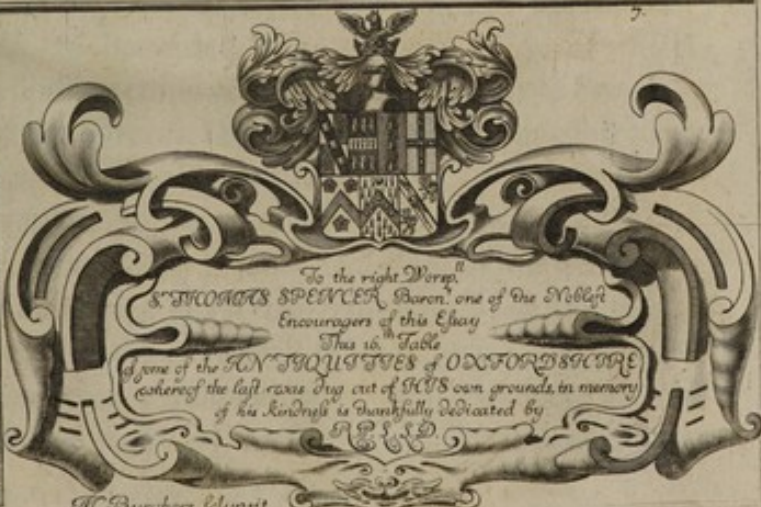 7.
To the right Worsp.ll
Sr. THOMAS SPENCER Baront. one of the Nobleſt
Encouragers of this Eſsay
This 16.th Table
of ſome of the ANTIQUITIES of OXFORDSHIRE
whereof the laſt was dug out of HIS own grounds, in memory
of his kindneſs is thankfully dedicated by
R.P.LLD.
M Burghers ſculpsit